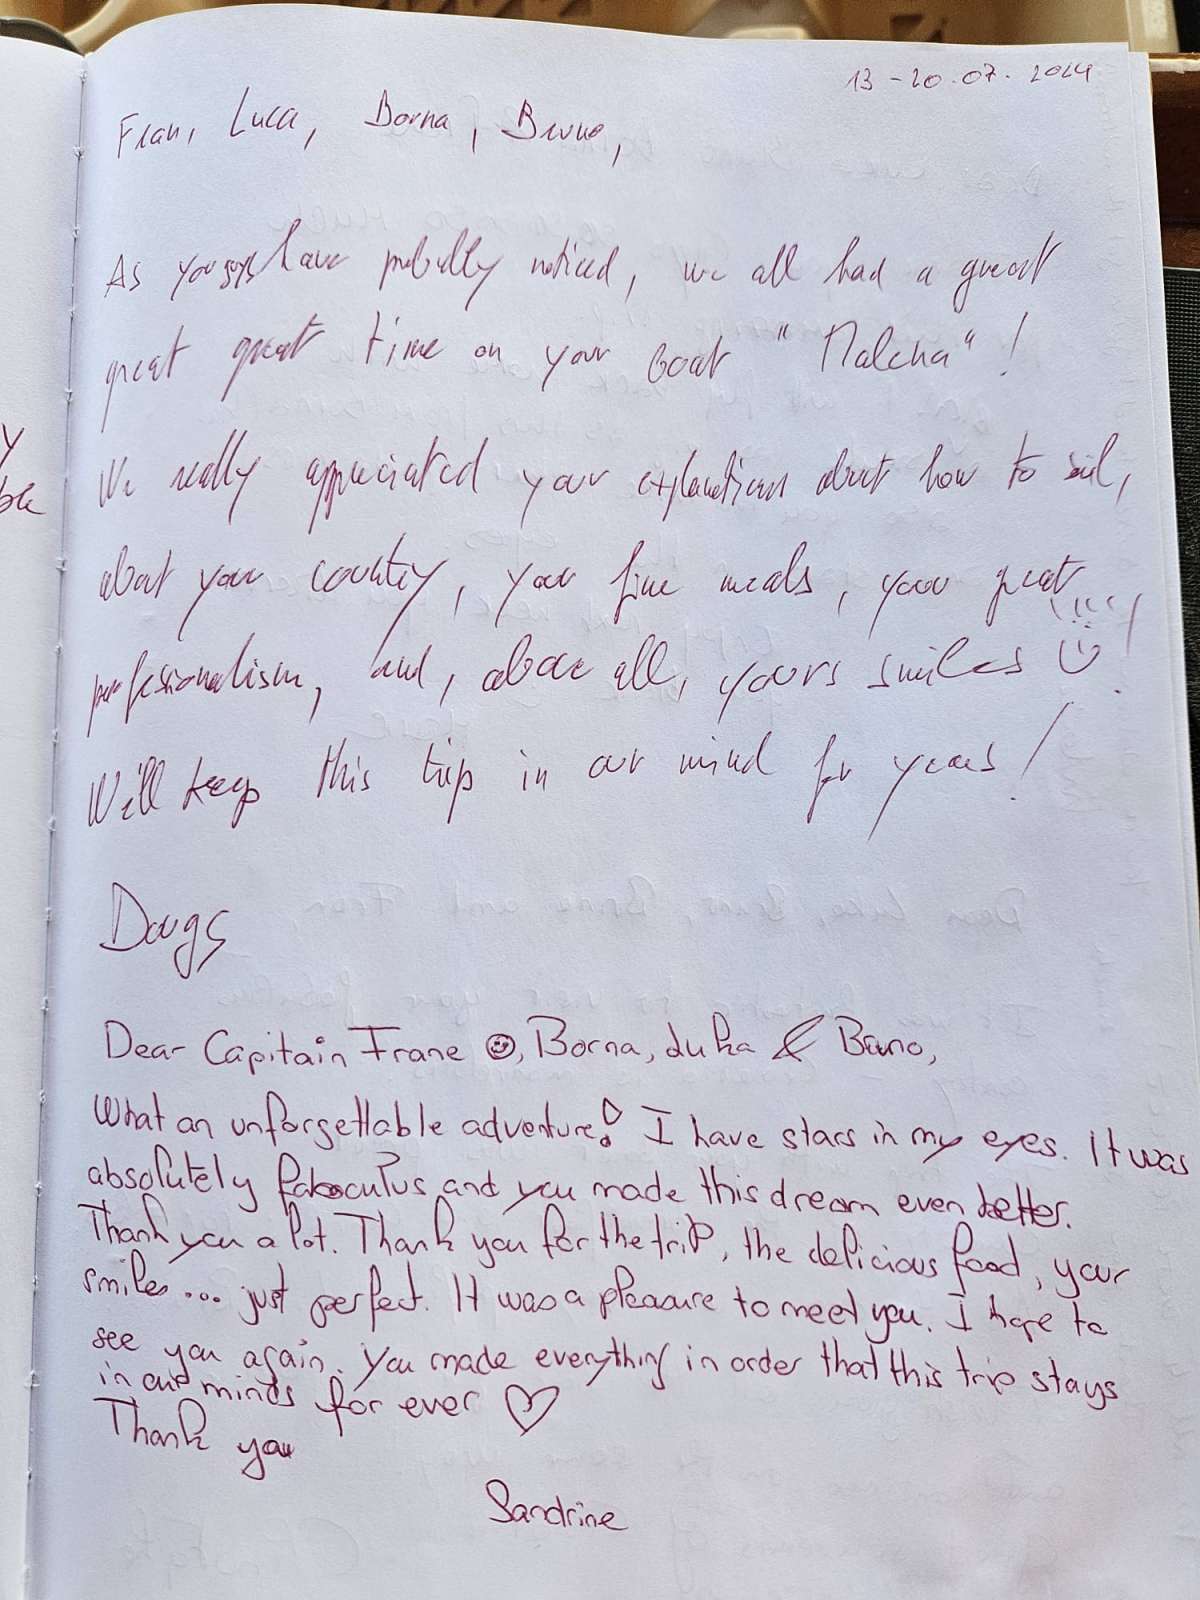 13 - 20.07.2024
Fran, Luca, Borna, Bruno,
As you guys have probably noticed, we all had a great
great great time on your boat "Malena"!
We really appreciated your explanations about how to sail,
about your country, your fine meals, your great
professionalism, and, above all, yours smiles !!!!
We'll keep this trip in our mind for years!
Dougs
Dear Capitain Frane, Borna, Luka & Bruno,
What an unforgettable adventure! I have stars in my eyes. It was
absolutely and you made this dream even better.
Thank you a lot. Thank you for the trip, the delicious food, your
smiles... just perfect. It was a pleasure to meet you. I hope to
see you again. You made everything in order that this trip stays
in our minds for ever ♡
Thank you
Sandrine